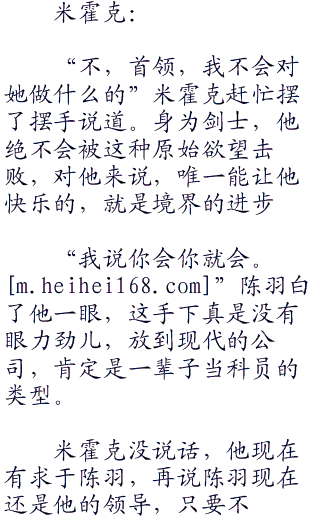 米霍克：
“不，首领，我不会对
她做什么的”米霍克赶忙摆
了摆手说道。身为剑士，他
绝不会被这种原始欲望击
败，对他来说，唯一能让他
快乐的，就是境界的进步
“我说你会你就会。
[m.heihei168.com]”陈羽白
了他一眼，这手下真是没有
眼力劲儿，放到现代的公
司，肯定是一辈子当科员的
类型。
米霍克没说话，他现在
有求于陈羽，再说陈羽现在
还是他的领导，只要不